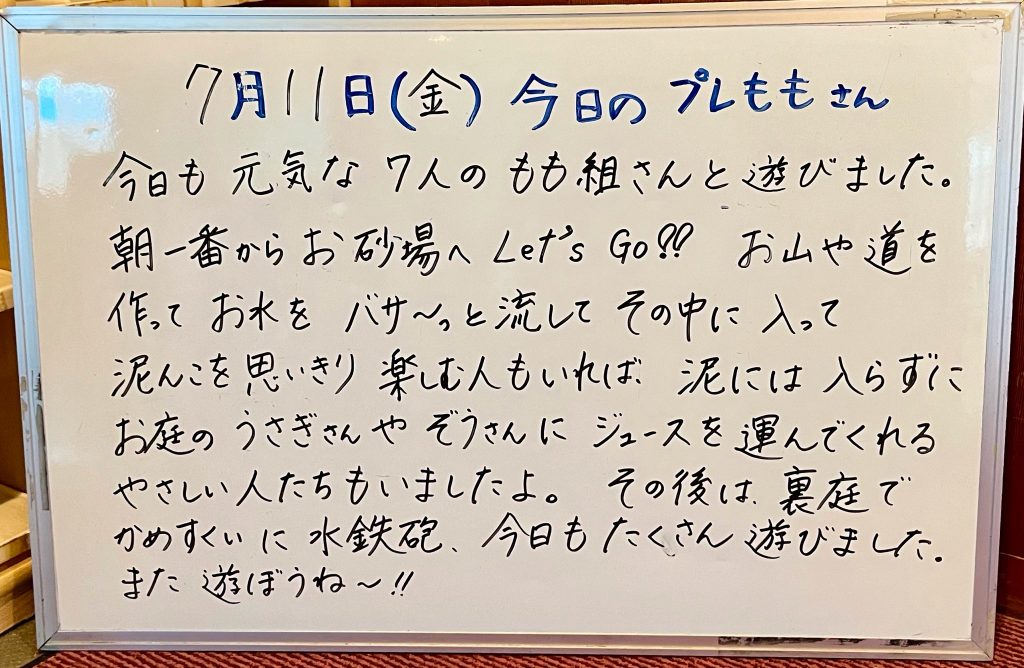 7月11日(金) 今日の プレももさん
今日も 元気な 7人の もも組さんと 遊びました。
朝一番から お砂場へ Let's Go!! お山や 道を
作って お水を バサ〜っと 流して その中に 入って
泥んこを 思いきり 楽しむ人もいれば、 泥には 入らずに
お庭の うさぎさんや ぞうさんに ジュースを 運んでくれる
やさしい 人たちもいましたよ。 その後は、裏庭で
かめすくいに 水鉄砲、 今日も たくさん 遊びました。
また 遊ぼうね〜!!